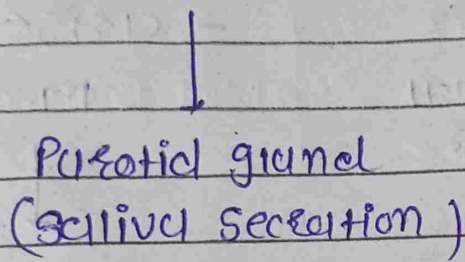 Parotid gland
(saliva secreation)